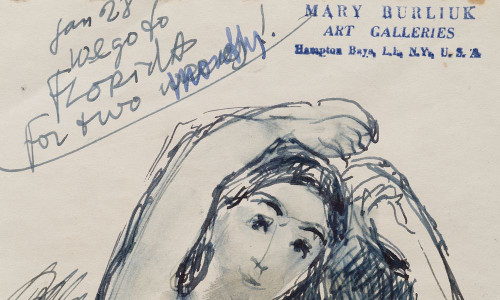 jan 28
we go to
FLORIDA
for two
MARY BURLIUK
ART GALLERIES
Hampton Bays, L.I., N.Y., U. S. A.